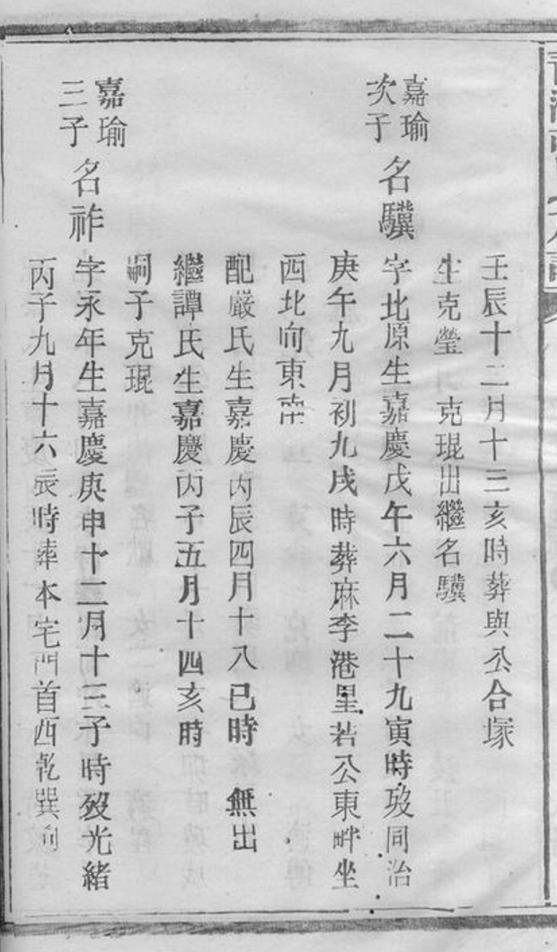 壬辰十二月十三亥時葬與公合塚
生克瑩　克琨出繼名驥
嘉瑜
次子
名驥
字北原生嘉慶戊午六月二十九寅時歿同治
庚午九月初九戌時葬麻李港里若公東畔坐
西北向東南
配嚴氏生嘉慶丙辰四月十八巳時　無出
繼譚氏生嘉慶丙子五月十四亥時
嗣子克琨
嘉瑜
三子
名祚
字永年生嘉慶庚申十二月十三子時歿光緒
丙子九月十六辰時葬本宅門首西乾巽向